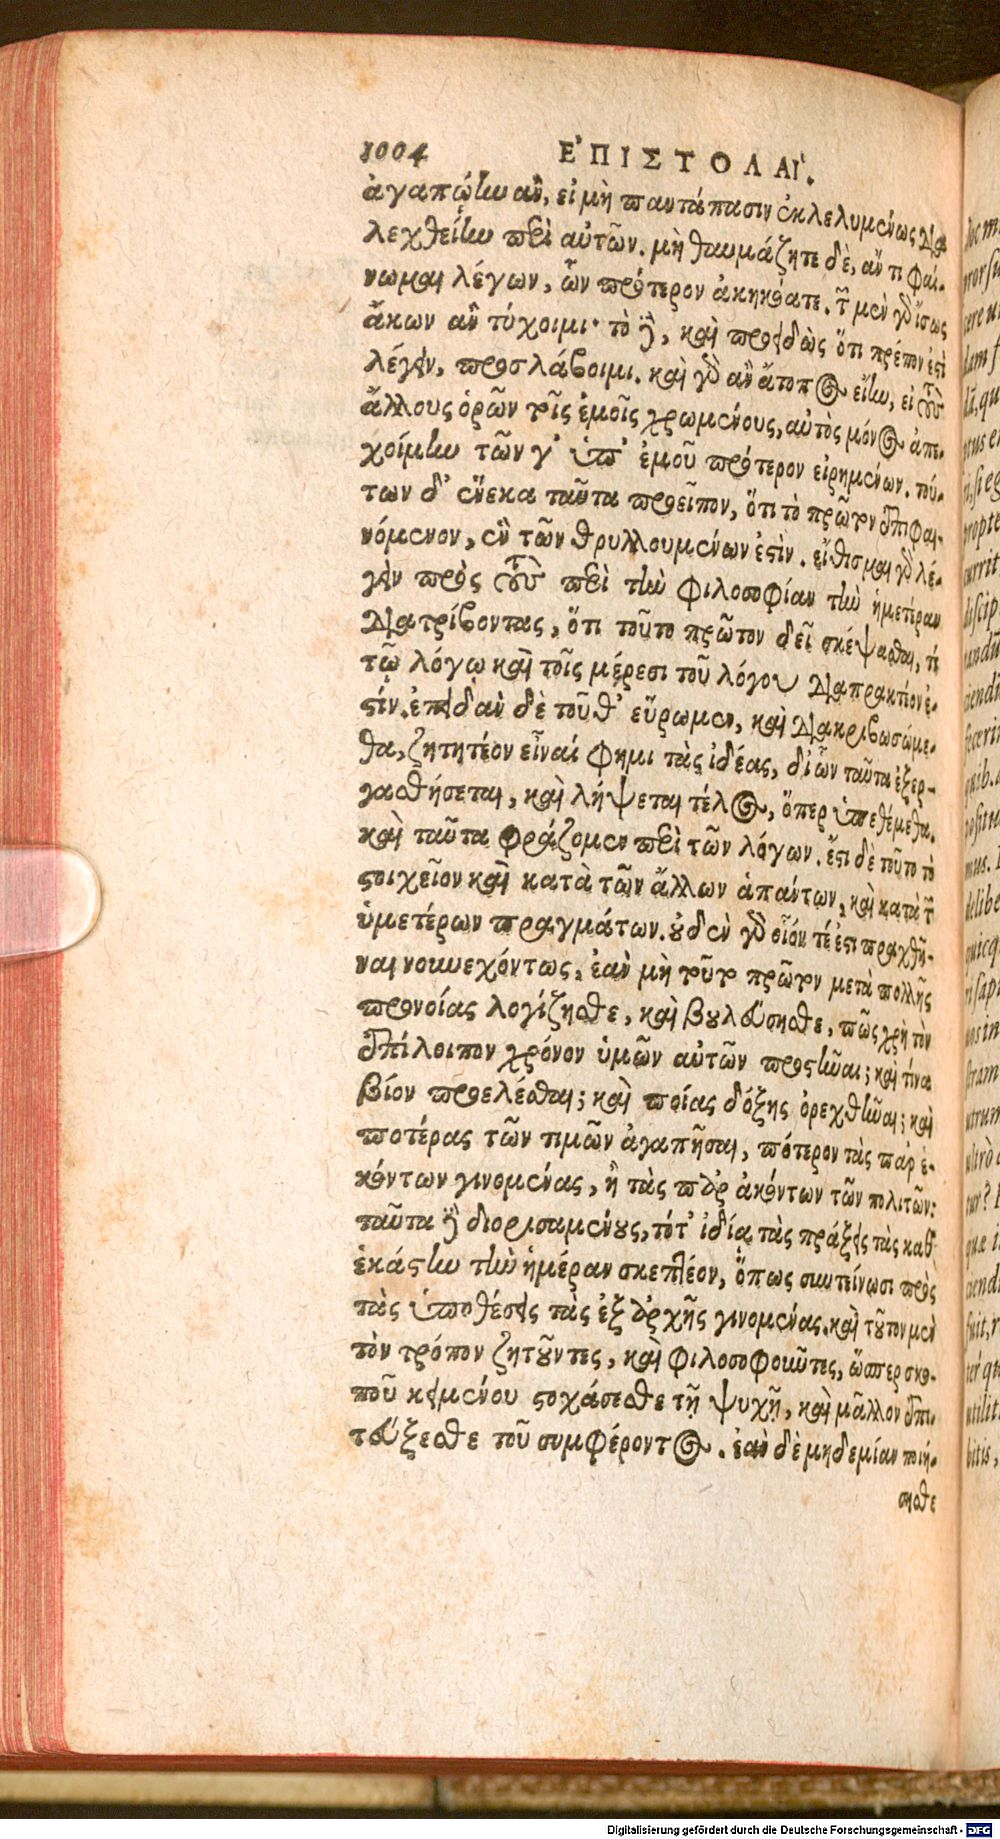 1004 ἘΠΙΣΤΟΛΑΙ.
ἀγαπῴην ἂν, εἰ μὴ παντάπασιν ἐκλελυμένως δια
λεχθείην περὶ αὐτῶν. μὴ θαυμάζητε δὲ, ἄν τι φαί-
νωμαι λέγων, ὧν πρότερον ἀκηκόατε. τῷ μὲν γὰρ ἴσως
ἄκων ἂν τύχοιμι· τὸ δὲ, καὶ προειδὼς ὅτι πρέπον ἐστὶ
λέγειν, προσλάβοιμι. καὶ γὰρ ἂν ἄτοπος εἴην, εἰ τοὺς
ἄλλους ὁρῶν τοῖς ἐμοῖς χρωμένους, αὐτὸς μόνος ἀπε-
χοίμην τῶν γ' ὑπ' ἐμοῦ πρότερον εἰρημένων. τού-
των δ' ἕνεκα ταῦτα προεῖπον, ὅτι τὸ πρῶτον ἐπιφαι-
νόμενον, ἓν τῶν θρυλλουμένων ἐστίν. εἴθισμαι γὰρ λέ-
γειν πρὸς τοὺς περὶ τὴν φιλοσοφίαν τὴν ἡμετέραν
διατρίβοντας, ὅτι τοῦτο πρῶτον δεῖ σκέψασθαι, τί
τῷ λόγῳ καὶ τοῖς μέρεσι τοῦ λόγου διαπρακτέον ἐ-
στίν. ἐπειδὰν δὲ τοῦθ' εὕρωμεν, καὶ διακριβωσώμε-
θα, ζητητέον εἶναί φημι τὰς ἰδέας, δι' ὧν ταῦτα ἐξερ-
γασθήσεται, καὶ λήψεται τέλος, ὅπερ ὑπεθέμεθα.
καὶ ταῦτα φράζομεν περὶ τῶν λόγων. ἔστι δὲ τοῦτο τὸ
στοιχεῖον καὶ κατὰ τῶν ἄλλων ἁπάντων, καὶ κατὰ τῶν
ὑμετέρων πραγμάτων. οὐδὲν γὰρ οἷόν τέ ἐστι πραχθῆ-
ναι νουνεχόντως, ἐὰν μὴ τοῦτο πρῶτον μετὰ πολλῆς
προνοίας λογίζησθε, καὶ βουλεύσησθε, πῶς χρὴ τὸν
ἐπίλοιπον χρόνον ὑμῶν αὐτῶν προστῆναι; καὶ τίνα
βίον προελέσθαι; καὶ ποίας δόξης ὀρεχθῆναι; καὶ
ποτέρας τῶν τιμῶν ἀγαπῆσαι, πότερον τὰς παρ' ἑ-
κόντων γινομένας, ἢ τὰς παρ' ἀκόντων τῶν πολιτῶν;
ταῦτα δὲ διορισαμένους, τότ' ἰδίᾳ τὰς πράξεις τὰς καθ'
ἑκάστην τὴν ἡμέραν σκεπτέον, ὅπως συντείνωσι πρὸς
τὰς ὑποθέσεις τὰς ἐξ ἀρχῆς γινομένας. καὶ τοῦτον μὲν
τὸν τρόπον ζητοῦντες, καὶ φιλοσοφοῦντες, ὥσπερ σκο-
ποῦ κειμένου στοχάσεσθε τῇ ψυχῇ, καὶ μᾶλλον ἐπι-
τεύξεσθε τοῦ συμφέροντος. ἐὰν δὲ μηδεμίαν ποιή-
σησθε
Digitalisierung gefördert durch die Deutsche Forschungsgemeinschaft - DFG